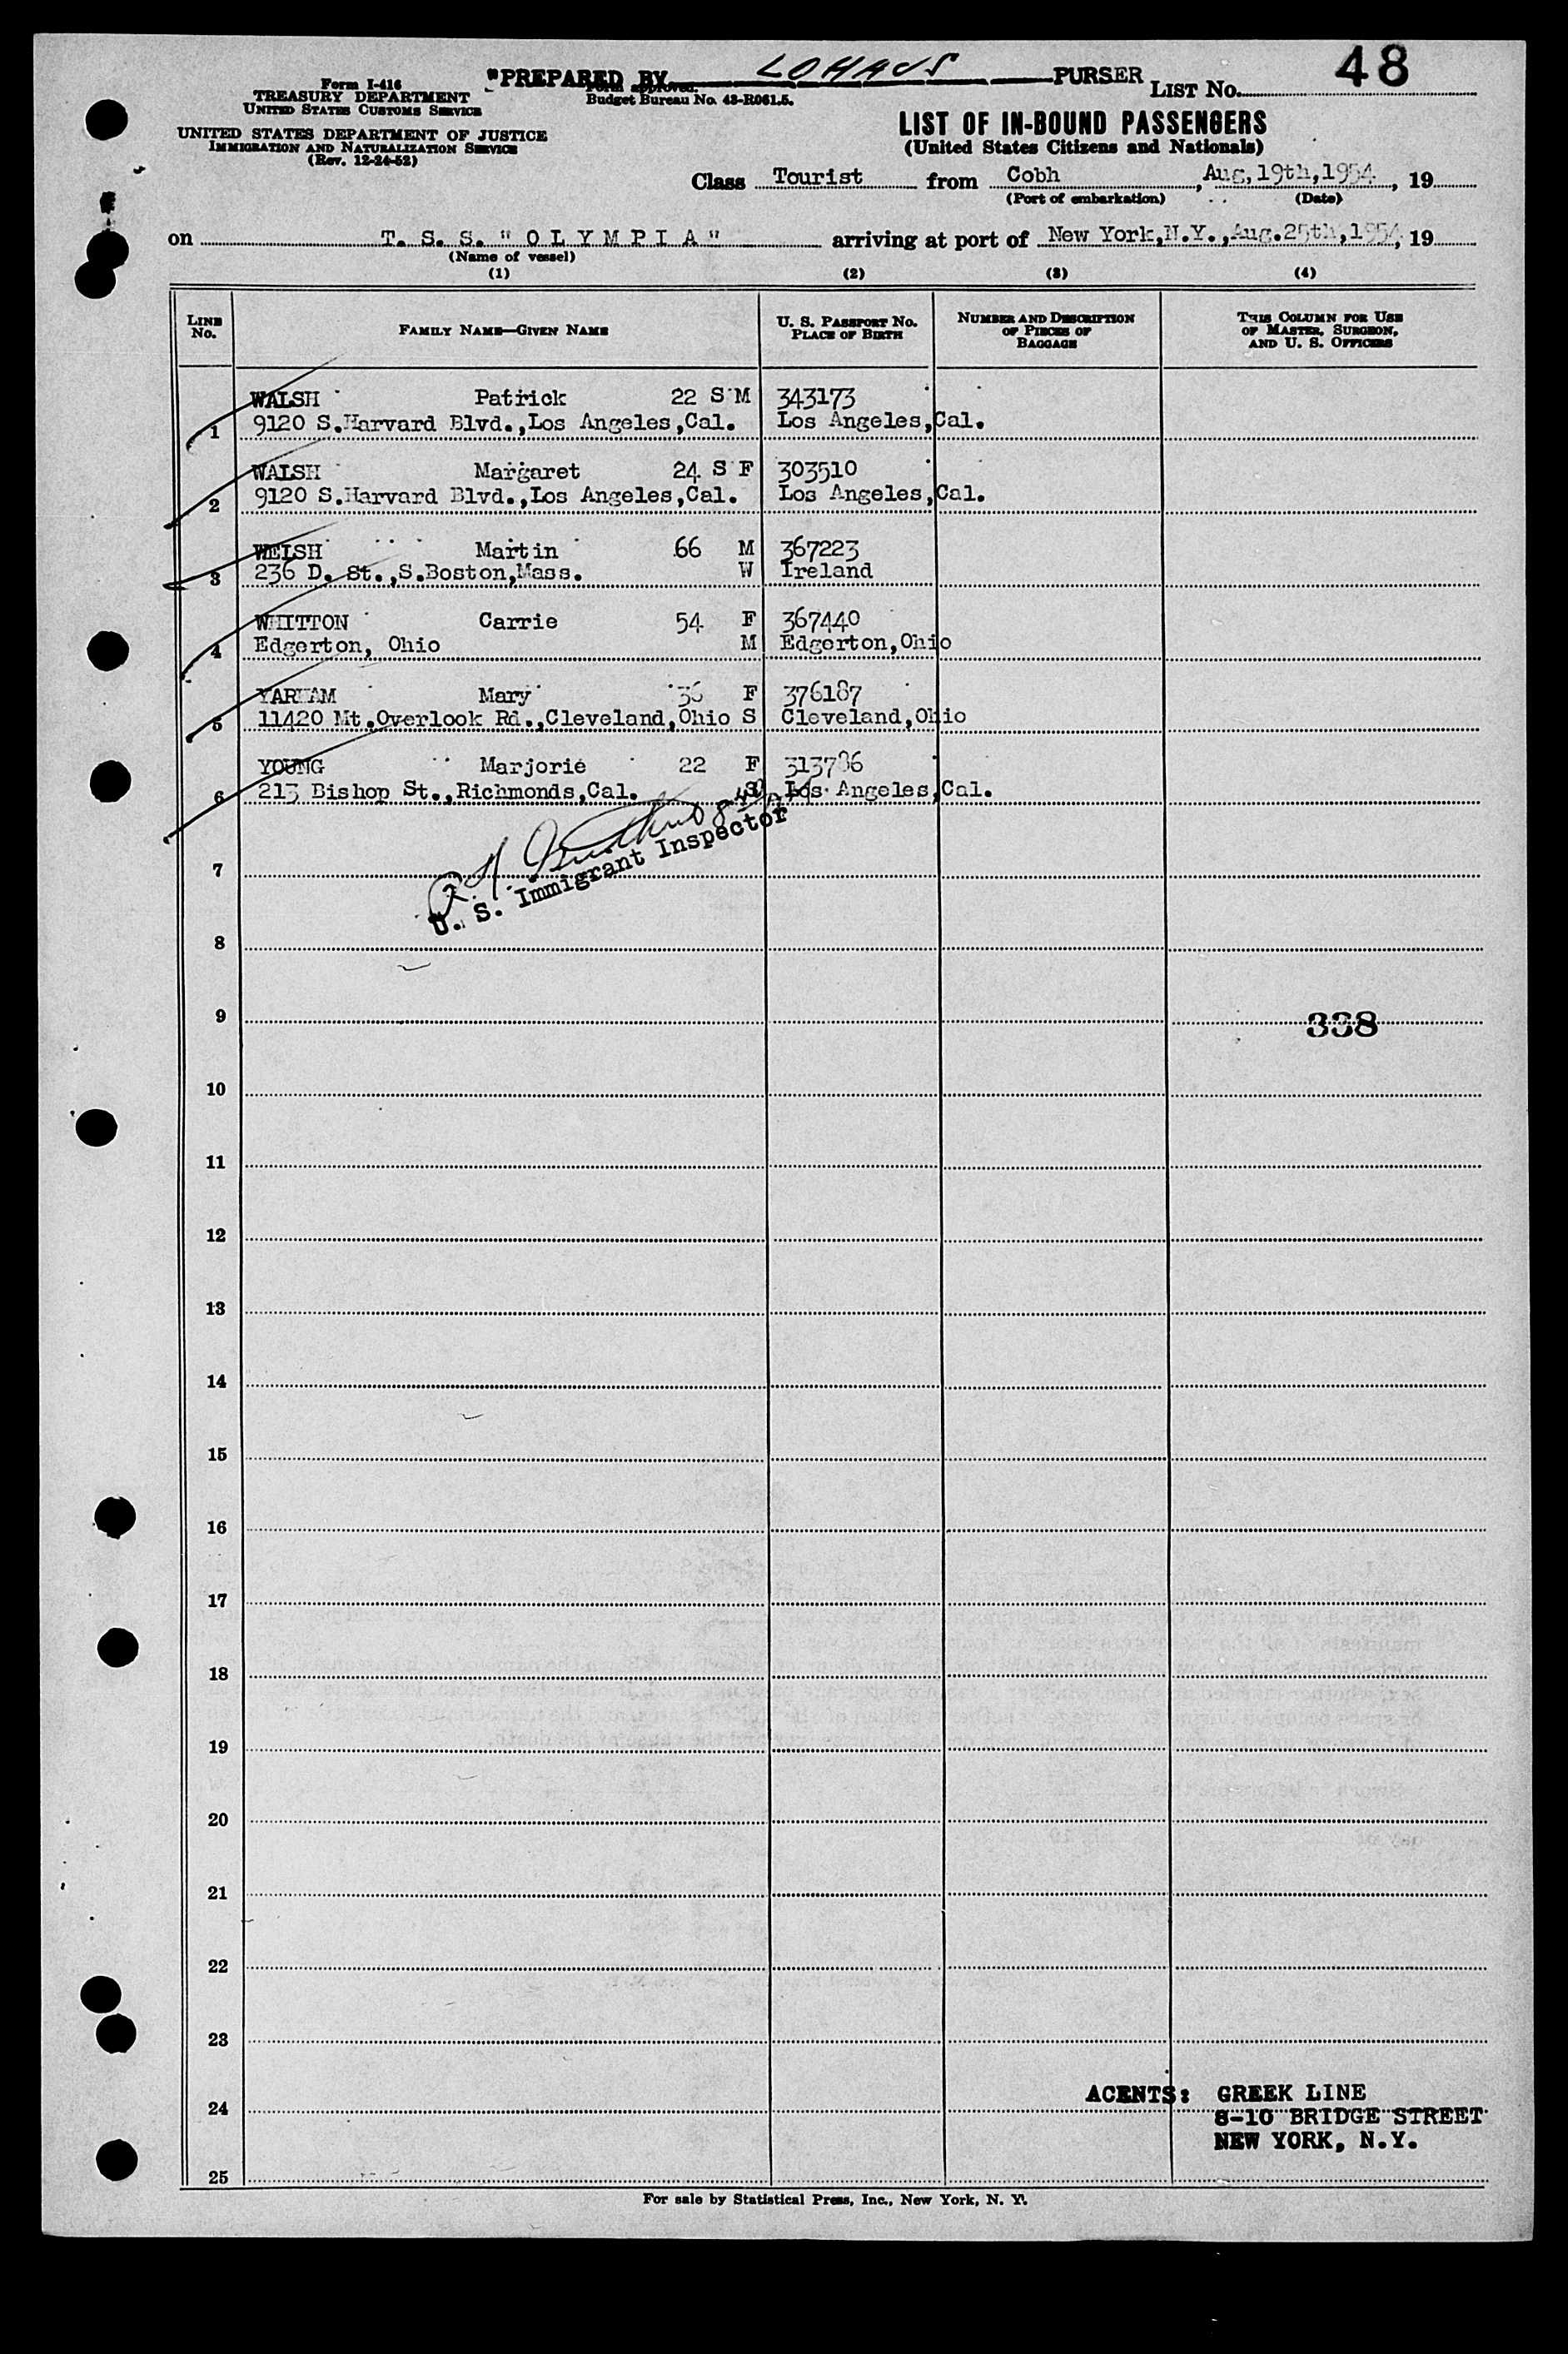 Form I-416
TREASURY DEPARTMENT
UNITED STATES CUSTOMS SERVICE
UNITED STATES DEPARTMENT OF JUSTICE
IMMIGRATION AND NATURALIZATION SERVICE
(Rev. 12-24-52)
"PREPARED BY LOHAUS PURSER
Form approved.
Budget Bureau No. 43-R061.5.
LIST No. 48
LIST OF IN-BOUND PASSENGERS
(United States Citizens and Nationals)
Class Tourist from Cobh, Aug,19th,1954, 19
(Port of embarkation) (Date)
on T. S. S. "OLYMPIA" arriving at port of New York,N.Y.,Aug.25th,1954, 19
(Name of vessel)
(1) (2) (3) (4)
LINE No. FAMILY NAME—GIVEN NAME U. S. PASSPORT No. PLACE OF BIRTH NUMBER AND DESCRIPTION OF PIECES OF BAGGAGE THIS COLUMN FOR USE OF MASTER, SURGEON, AND U. S. OFFICERS
WALSH Patrick 22 S M 343173
1 9120 S.Harvard Blvd.,Los Angeles,Cal. Los Angeles,Cal.
WALSH Margaret 24 S F 303510
2 9120 S.Harvard Blvd.,Los Angeles,Cal. Los Angeles,Cal.
WELSH Martin 66 M 367223
3 236 D. St.,S.Boston,Mass. W Ireland
WHITTON Carrie 54 F 367440
4 Edgerton, Ohio M Edgerton,Ohio
Mary 36 F 376187
5 11420 Mt.Overlook Rd.,Cleveland,Ohio S Cleveland,Ohio
YOUNG Marjorie 22 F 313786
6 213 Bishop St.,Richmonds,Cal. S Los Angeles,Cal.
U. S. Immigrant Inspector
7
8
9 338
10
11
12
13
14
15
16
17
18
19
20
21
22
23
AGENTS: GREEK LINE
24 8-10 BRIDGE STREET
NEW YORK, N.Y.
25
For sale by Statistical Press, Inc., New York, N. Y.